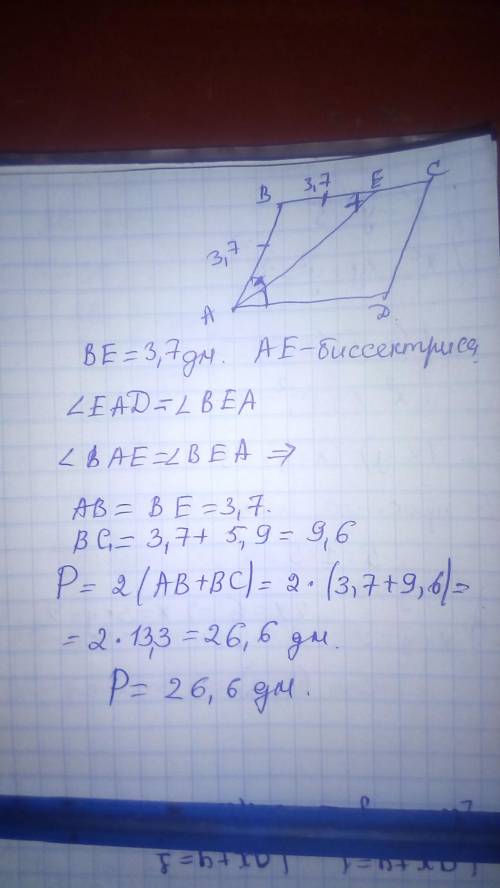 C
3,7 E
B
3,7
A D
BE = 3,7 дм. AE – биссектриса
∠EAD = ∠BEA
∠BAE = ∠BEA ⇒
AB = BE = 3,7.
BC = 3,7 + 5,9 = 9,6
P = 2(AB+BC) = 2 · (3,7+9,6) =
= 2 · 13,3 = 26,6 дм.
P = 26,6 дм.
ax+y=1 ax+y=2